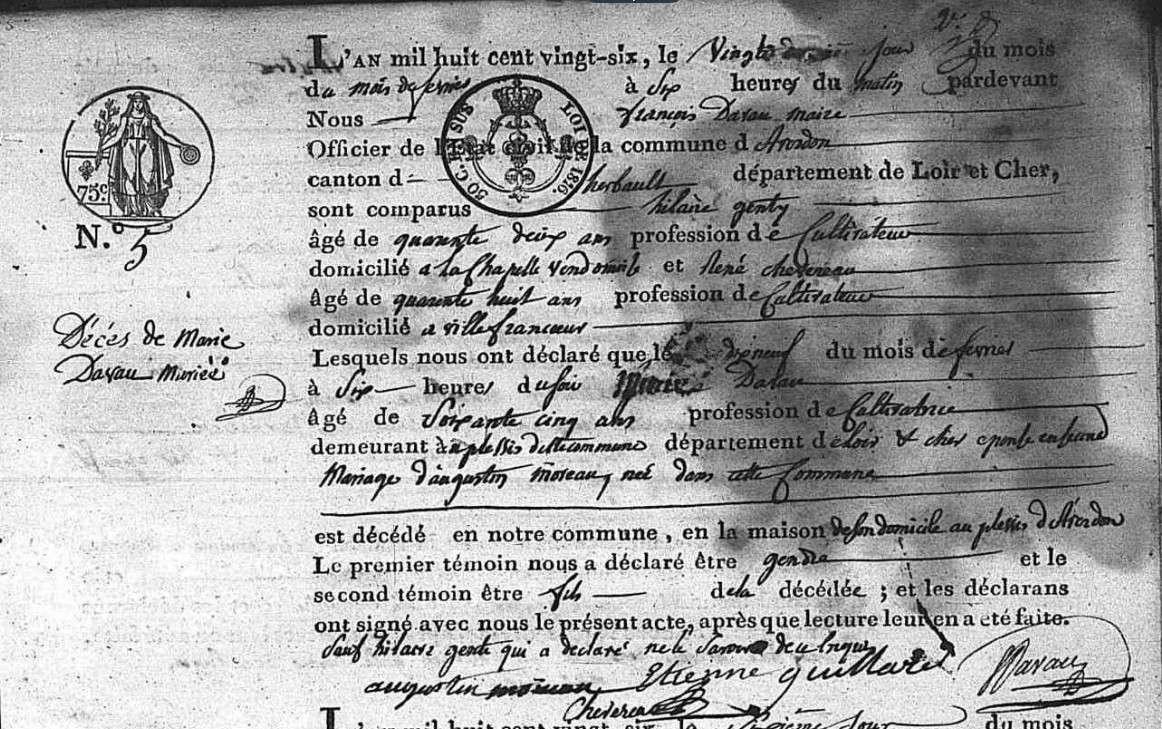 L'AN mil huit cent vingt-six, le Vingt jour du mois
du mois de fevrier à Six heures du matin pardevant
Nous françois Davau maire
Officier de l'État civil de la commune d'Averdon
canton d herbault département de Loir et Cher,
sont comparus hilaire genty
âgé de quarente deux ans profession de Cultivateur
domicilié a la Chapelle Vendomoise et René chevereau
âgé de quarente huit ans profession de Cultivateur
domicilié a villefrancoeur
Lesquels nous ont déclaré que le dixneuf du mois de fevrier
à Six heures du soir Marie Davau
âgé de Soixante cinq ans profession de Cultivatrice
demeurant au plessis de cette commune département de loir & cher epouse en
Mariage d'augustin moreau, neé dans cette Commune
est décédé en notre commune, en la maison de son domicile au plessis d'Averdon
Le premier témoin nous a déclaré être gendre et le
second témoin être fils de la décédée ; et les déclarans
ont signé avec nous le présent acte, après que lecture leur en a été faite.
Sauf hilaire genti qui a declaré ne le Savoir
augustin moreau Etienne guillard Davau
Chevereau
L'an mil huit cent vingt-six, le jour du mois
75c.
30 C. EN SUS LOI DE 1816.
N.° 5
Décés de Marie
Davau Mariéé